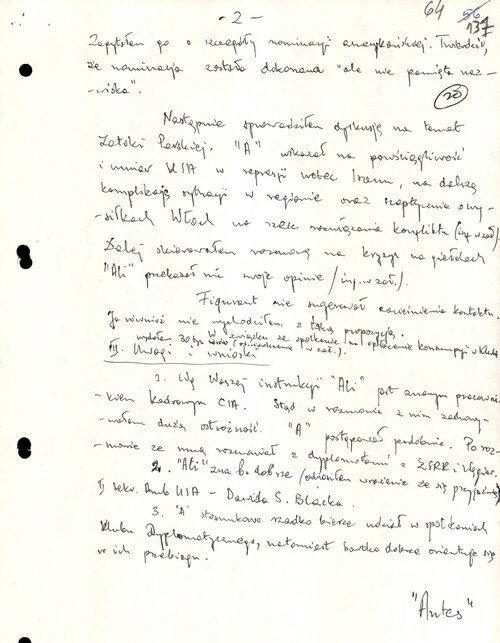 - 2 -
64
56
137
Zapytałem go o szczegóły nominacji amerykańskiej. Twierdził,
że nominacja została dokonana "ale nie pamięta naz-
-wiska".
20
Następnie sprowadziłem dyskusję na temat
Zatoki Perskiej. "A" wskazał na powściągliwość
i umiar USA w represji wobec Iranu, na dalszą
komplikację sytuacji w regionie oraz sceptycznie o wy-
-siłkach Włoch na rzecz rozwiązania konfliktu (inf. w zał).
Dalej skierowałem rozmowę na kryzys na giełdach
"Ali" przekazał mi swoje opinie /inf. w zał./.
Figurant nie sugerował zacieśnienia kontaktu.
Ja również nie wychodziłem z taką propozycją.
W związku ze spotkaniem na opłacenie konsumpcji w Klubie
wydałem 30 tys. lirów (w zał.).
III. Uwagi i wnioski
1. Wg Waszej instrukcji "Ali" jest znanym pracowni-
-kiem kadrowym CIA. Stąd w rozmowie z nim zachowy-
-wałem dużą ostrożność. "A" postępował podobnie. Po roz-
-mowie ze mną rozmawiał z dyplomatami z ZSRR i Węgier.
2. "Ali" zna b. dobrze (odniosłem wrażenie że się przyjaźnią)
II sekr. Amb USA - Davida S. Blacka.
3. "A" stosunkowo rzadko bierze udział w spotkaniach
Klubu Dyplomatycznego, natomiast bardzo dobrze orientuje się
w ich przebiegu.
"Antes"